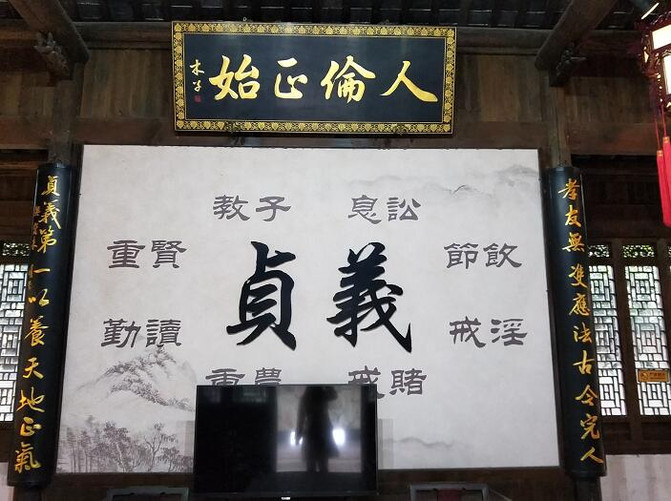 人倫正始
木子
孝友無雙應法古今完人
貞義第一以養天地正氣
義貞
訟息
飲節
淫戒
賭戒
子教
賢重
讀勤
農重